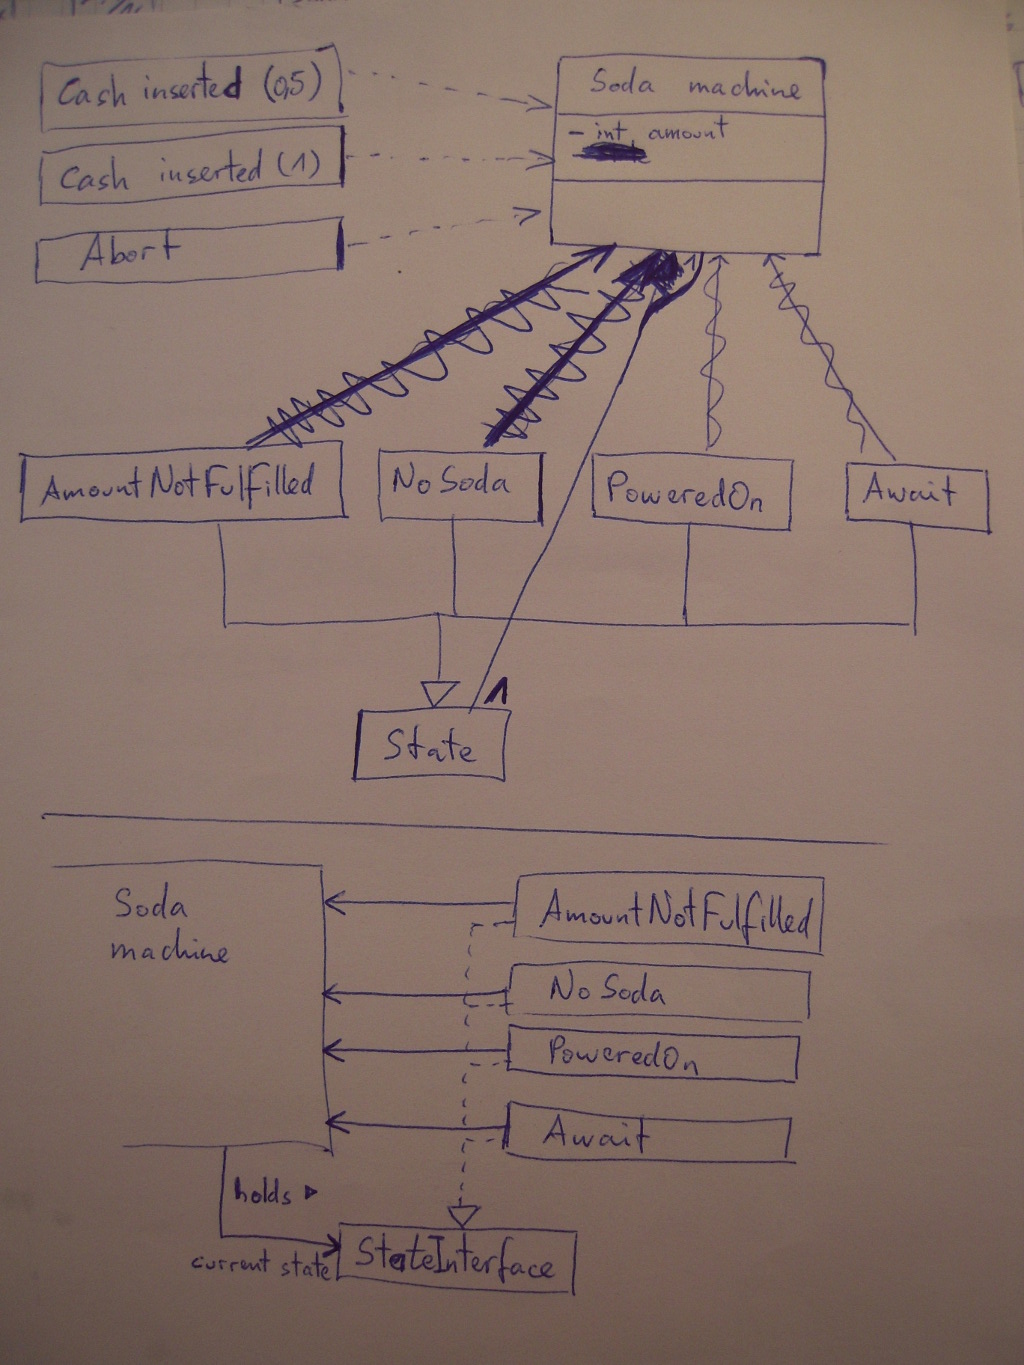 Cash inserted (0,5)
Soda machine
- int amount
Cash inserted (1)
Abort
AmountNotFulfilled
NoSoda
PoweredOn
Await
1
State
Soda
machine
AmountNotFulfilled
NoSoda
PoweredOn
Await
holds ▶
current state
StateInterface